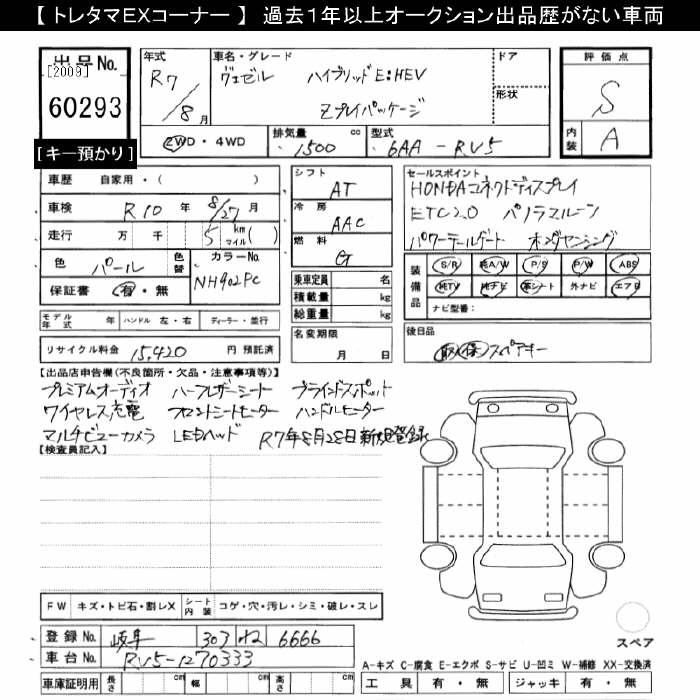 【 トレタマEXコーナー 】 過去１年以上オークション出品歴がない車両
出品No.
[2009]
60293
[キー預かり]
年式
R7/8月
車名・グレード
ヴェゼル ハイブリッドE:HEV
Zプレイパッケージ
ドア
形状
2WD・4WD
排気量
1500 cc
型式
6AA - RV5
評価点
S
内装
A
車歴 自家用・( )
車検 R10年 8/27月
走行 万 千 5 km マイル( )
色 パール 色替
カラーNo. NH902PC
保証書 有・無
シフト AT
冷房 AAC
燃料 G
乗車定員 名
積載量 kg
総重量 kg
セールスポイント
HONDAコネクトディスプレイ
ETC2.0 パノラマルーフ
パワーテールゲート ホンダセンシング
装備品
S/R 純A/W P/S P/W ABS
純TV 純ナビ 革シート 外ナビ エアB
ナビ型番：
モデル年式 年 ハンドル 左・右 ディーラー・並行
リサイクル料金 15,420 円 預託済
名変期限 月 日
後日品
取 保 スペアキー
【出品店申告欄(不良箇所・欠品・注意事項等)】
プレミアムオーディオ ハーフレザーシート ブラインドスポット
ワイヤレス充電 フロントシートヒーター ハンドルヒーター
マルチビューカメラ LEDヘッド R7年8月28日新規登録
【検査員記入】
FW キズ・トビ石・割レX シート内装 コゲ・穴・汚レ・シミ・破レ・スレ
登録No. 岐阜 303 ね 6666
車台No. RV5-1270333
車庫証明用 長さ cm 幅 cm 高さ cm
スペア
A-キズ C-腐食 E-エクボ S-サビ U-凹ミ W-補修 XX-交換済
工具 有・無 ジャッキ 有・無